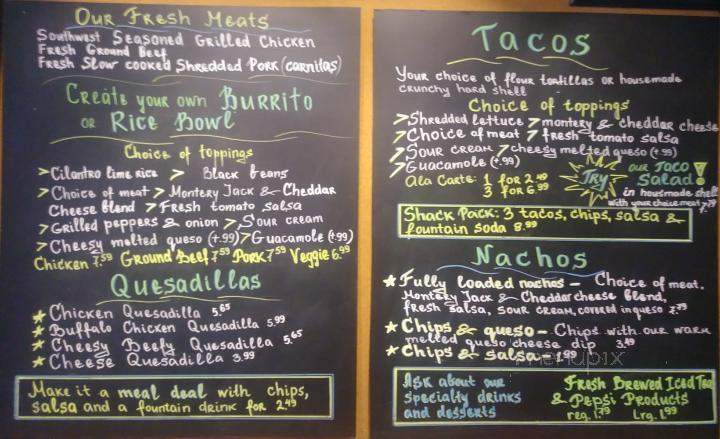 Our Fresh Meats
Southwest Seasoned Grilled Chicken
Fresh Ground Beef
Fresh Slow cooked Shredded Pork (carnitas)
Create your own Burrito
or Rice Bowl
Choice of toppings
> Cilantro lime rice > Black beans
> Choice of meat > Montery Jack & Cheddar
Cheese blend > Fresh tomato salsa
> Grilled peppers & onion > Sour cream
> Cheesy melted queso (+.99) > Guacamole (+.99)
Chicken 7.59 Ground Beef 7.59 Pork 7.59 Veggie 6.99
Quesadillas
★ Chicken Quesadilla 5.65
★ Buffalo Chicken Quesadilla 5.99
★ Cheesy Beefy Quesadilla 5.65
★ Cheese Quesadilla 3.99
Make it a meal deal with chips,
salsa and a fountain drink for 2.49
Tacos
Your choice of flour tortillas or housemade
crunchy hard shell
Choice of toppings
> Shredded lettuce > montery & cheddar cheese
> Choice of meat > fresh tomato salsa
> Sour cream > cheesy melted queso (+.99)
> Guacamole (+.99)
Ala Carte: 1 for 2.49
3 for 6.99
Try our Taco Salad!
in housemade shell
with your choice meat 7.79
Shack Pack: 3 tacos, chips, salsa &
fountain soda 8.99
Nachos
★ Fully loaded nachos - Choice of meat.
Montery Jack & Cheddar cheese blend,
fresh salsa, sour cream, covered in queso 7.79
★ Chips & queso - Chips with our warm
melted queso cheese dip 3.49
★ Chips & salsa - 1.99
menupix
Ask about our
specialty drinks
and desserts
Fresh Brewed Iced Tea
& Pepsi Products
reg. 1.79 Lrg. 1.99